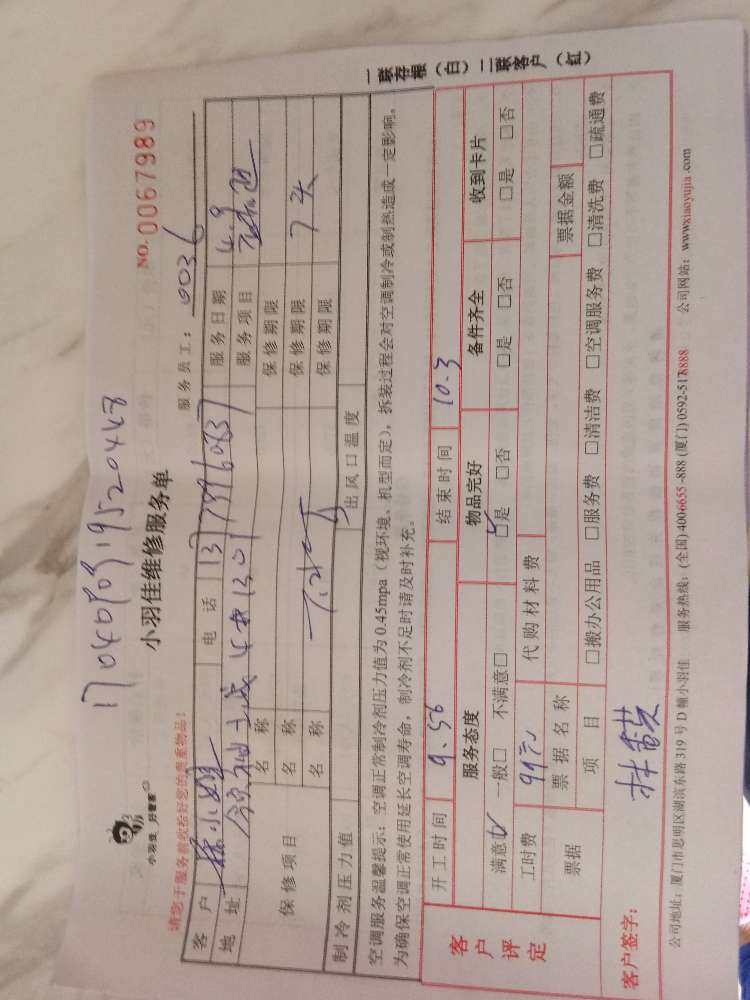 1704080919520448
小羽佳 好管家
小羽佳维修服务单
NO. 0067989
请您于服务前收检好您的贵重物品！
服务员工： 0036
客 户 电 话 服务日期 4.9
地 址 服务项目
保修项目
名 称 保修期限
名 称 保修期限 7天
名 称 保修期限
制冷剂压力值 出风口温度
空调服务温馨提示：空调正常制冷剂压力值为0.45mpa（视环境、机型而定），拆装过程会对空调制冷或制热造成一定影响。
为确保空调正常使用延长空调寿命，制冷剂不足时请及时补充。
客户评定
开工时间 9.56 结束时间 10.3
服务态度 物品完好 备件齐全 收到卡片
满意☑ 一般□ 不满意□ ☑是 □否 □是 □否 □是 □否
工时费 99元 代购材料费
票据 票据名称 票据金额
项 目 □搬办公用品 □服务费 □清洁费 □空调服务费 □清洗费 □疏通费
客户签字：
公司地址：厦门市思明区湖滨东路319号D幢小羽佳 服务热线：(全国) 4006655-888 (厦门) 0592-5178888 公司网站：wwwxiaoyujia.com
一联存根（白）二联客户（红）